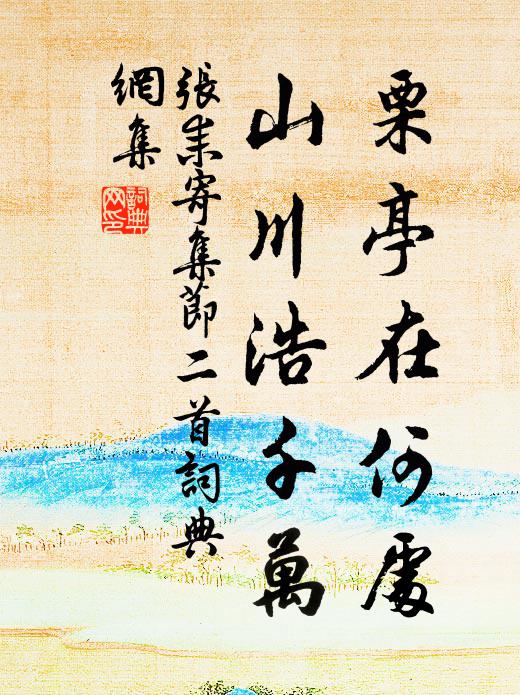 栗亭在何處
山川浩千萬
張耒寄集節二首詞典
網集
詞典
网印